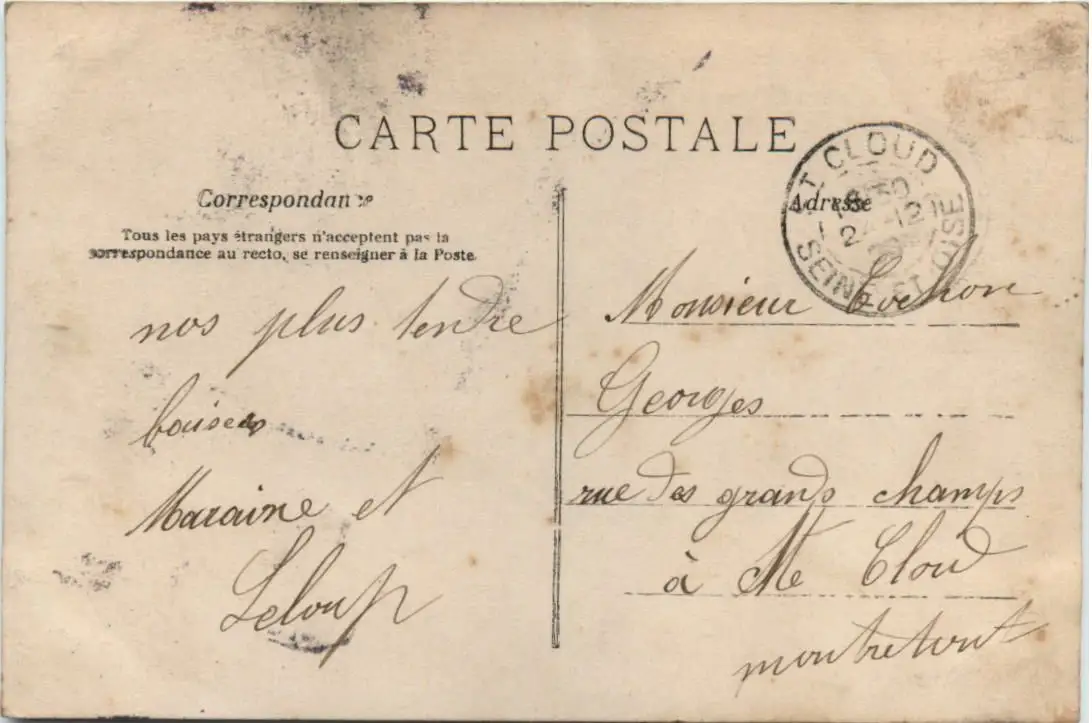 CARTE POSTALE
Correspondance
Tous les pays étrangers n'acceptent pas la
correspondance au recto, se renseigner à la Poste.
nos plus tendre
baisers
Maraine et
Leloup
ST CLOUD
SEINE ET OISE
Adresse
Monsieur Cochon
Georges
rue des grands champs
à Ste Cloud
montretout